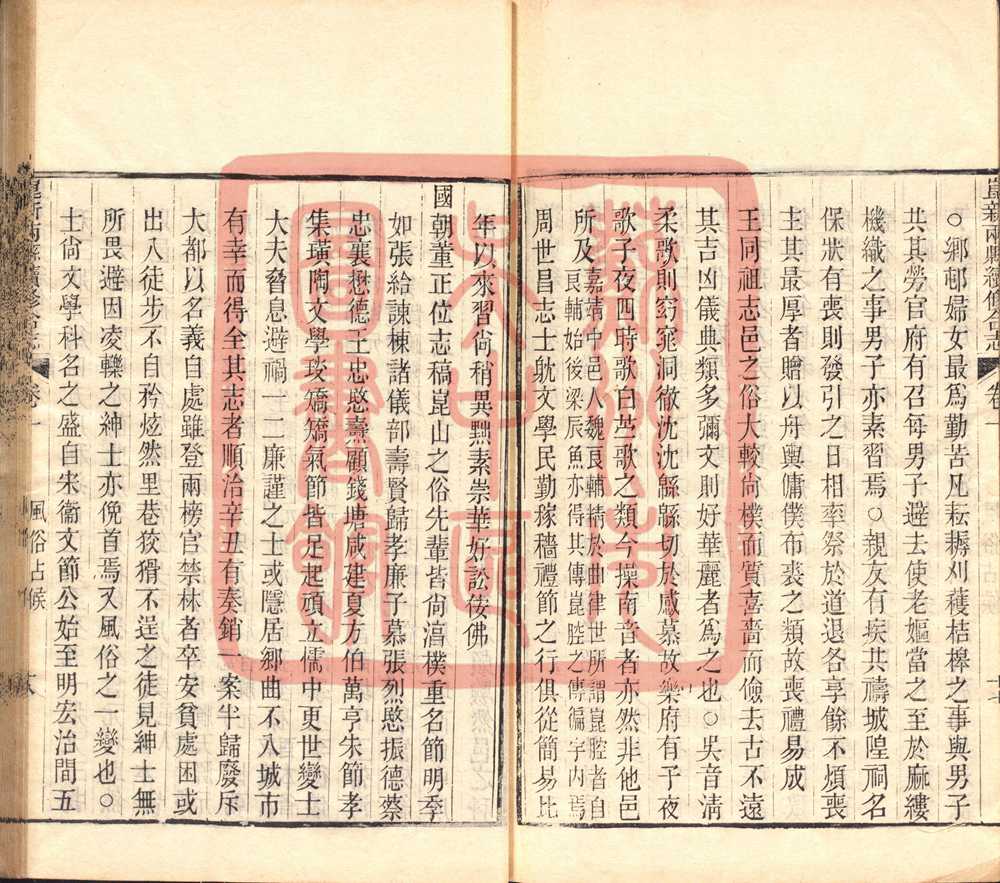 崑新兩縣續修合志 卷一
○鄉邨婦女最爲勤苦凡耘耨刈穫桔槹之事與男子
共其勞官府有召每男子避去使老嫗當之至於麻縷
機織之事男子亦素習焉○親友有疾共禱城隍祠名
保狀有喪則發引之日相率祭於道退各享餘不煩喪
主其最厚者贈以舟輿傭僕布裘之類故喪禮易成
王同祖志邑之俗大較尙樸而質喜嗇而儉去古不遠
其吉凶儀典類多彌文則好華麗者爲之也○吳音淸
柔歌則窈窕洞徹沈沈緜緜切於感慕故樂府有子夜
歌子夜四時歌曰吳歌之類今操南音者亦然非他邑
所及嘉靖中邑人魏良輔精於曲律世所謂崑腔者自
良輔始後梁辰魚亦得其傳崑腔之傳徧宇內焉
周世昌志士躭文學民勤稼穡禮節之行俱從簡易比
年以來習尙稍異黜素崇華好訟佞佛
國朝董正位志稿崑山之俗先輩皆尙淳樸重名節明季
如張給諫棟諸儀部壽賢歸孝廉子慕張烈愍振德蔡
忠襄懋德王忠愍燾顧錢塘咸建夏方伯萬亨朱節孝
集璜陶文學琰矯矯氣節皆足起頑立懦中更世變士
大夫脅息避禍一二廉謹之士或隱居鄉曲不入城市
有幸而得全其志者順治辛丑有奏銷一案半歸廢斥
大都以名義自處雖登兩榜官禁林者卒安貧處困或
出入徒步不自矜炫然里巷狡猾不逞之徒見紳士無
所畏避因凌轢之紳士亦俛首焉又風俗之一變也○
士尙文學科名之盛自宋衞文節公始至明宏治間五
崑新兩縣續修合志 卷一 風俗占候